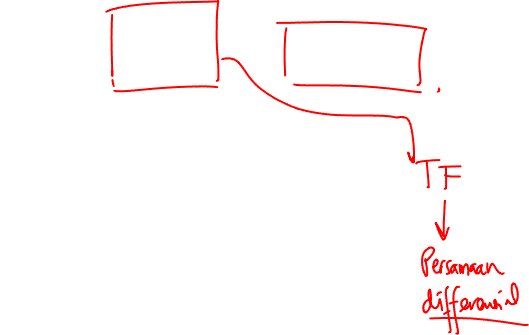 TF
Persamaan
differensial